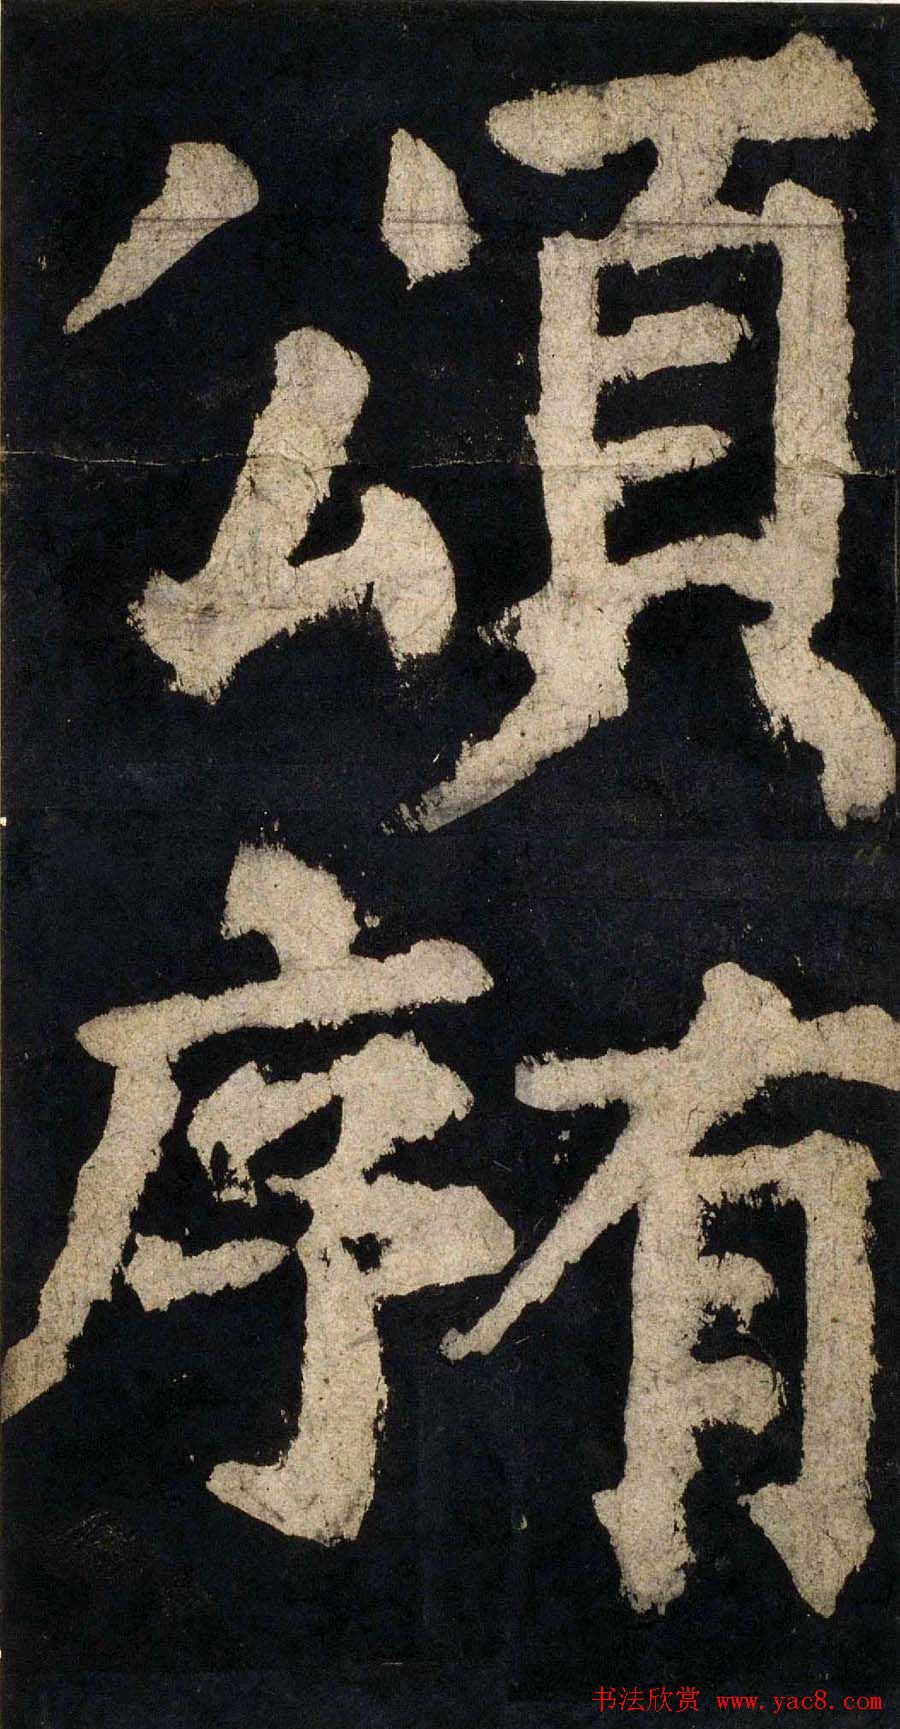 頌
有序
书法欣赏 www.yac8.com